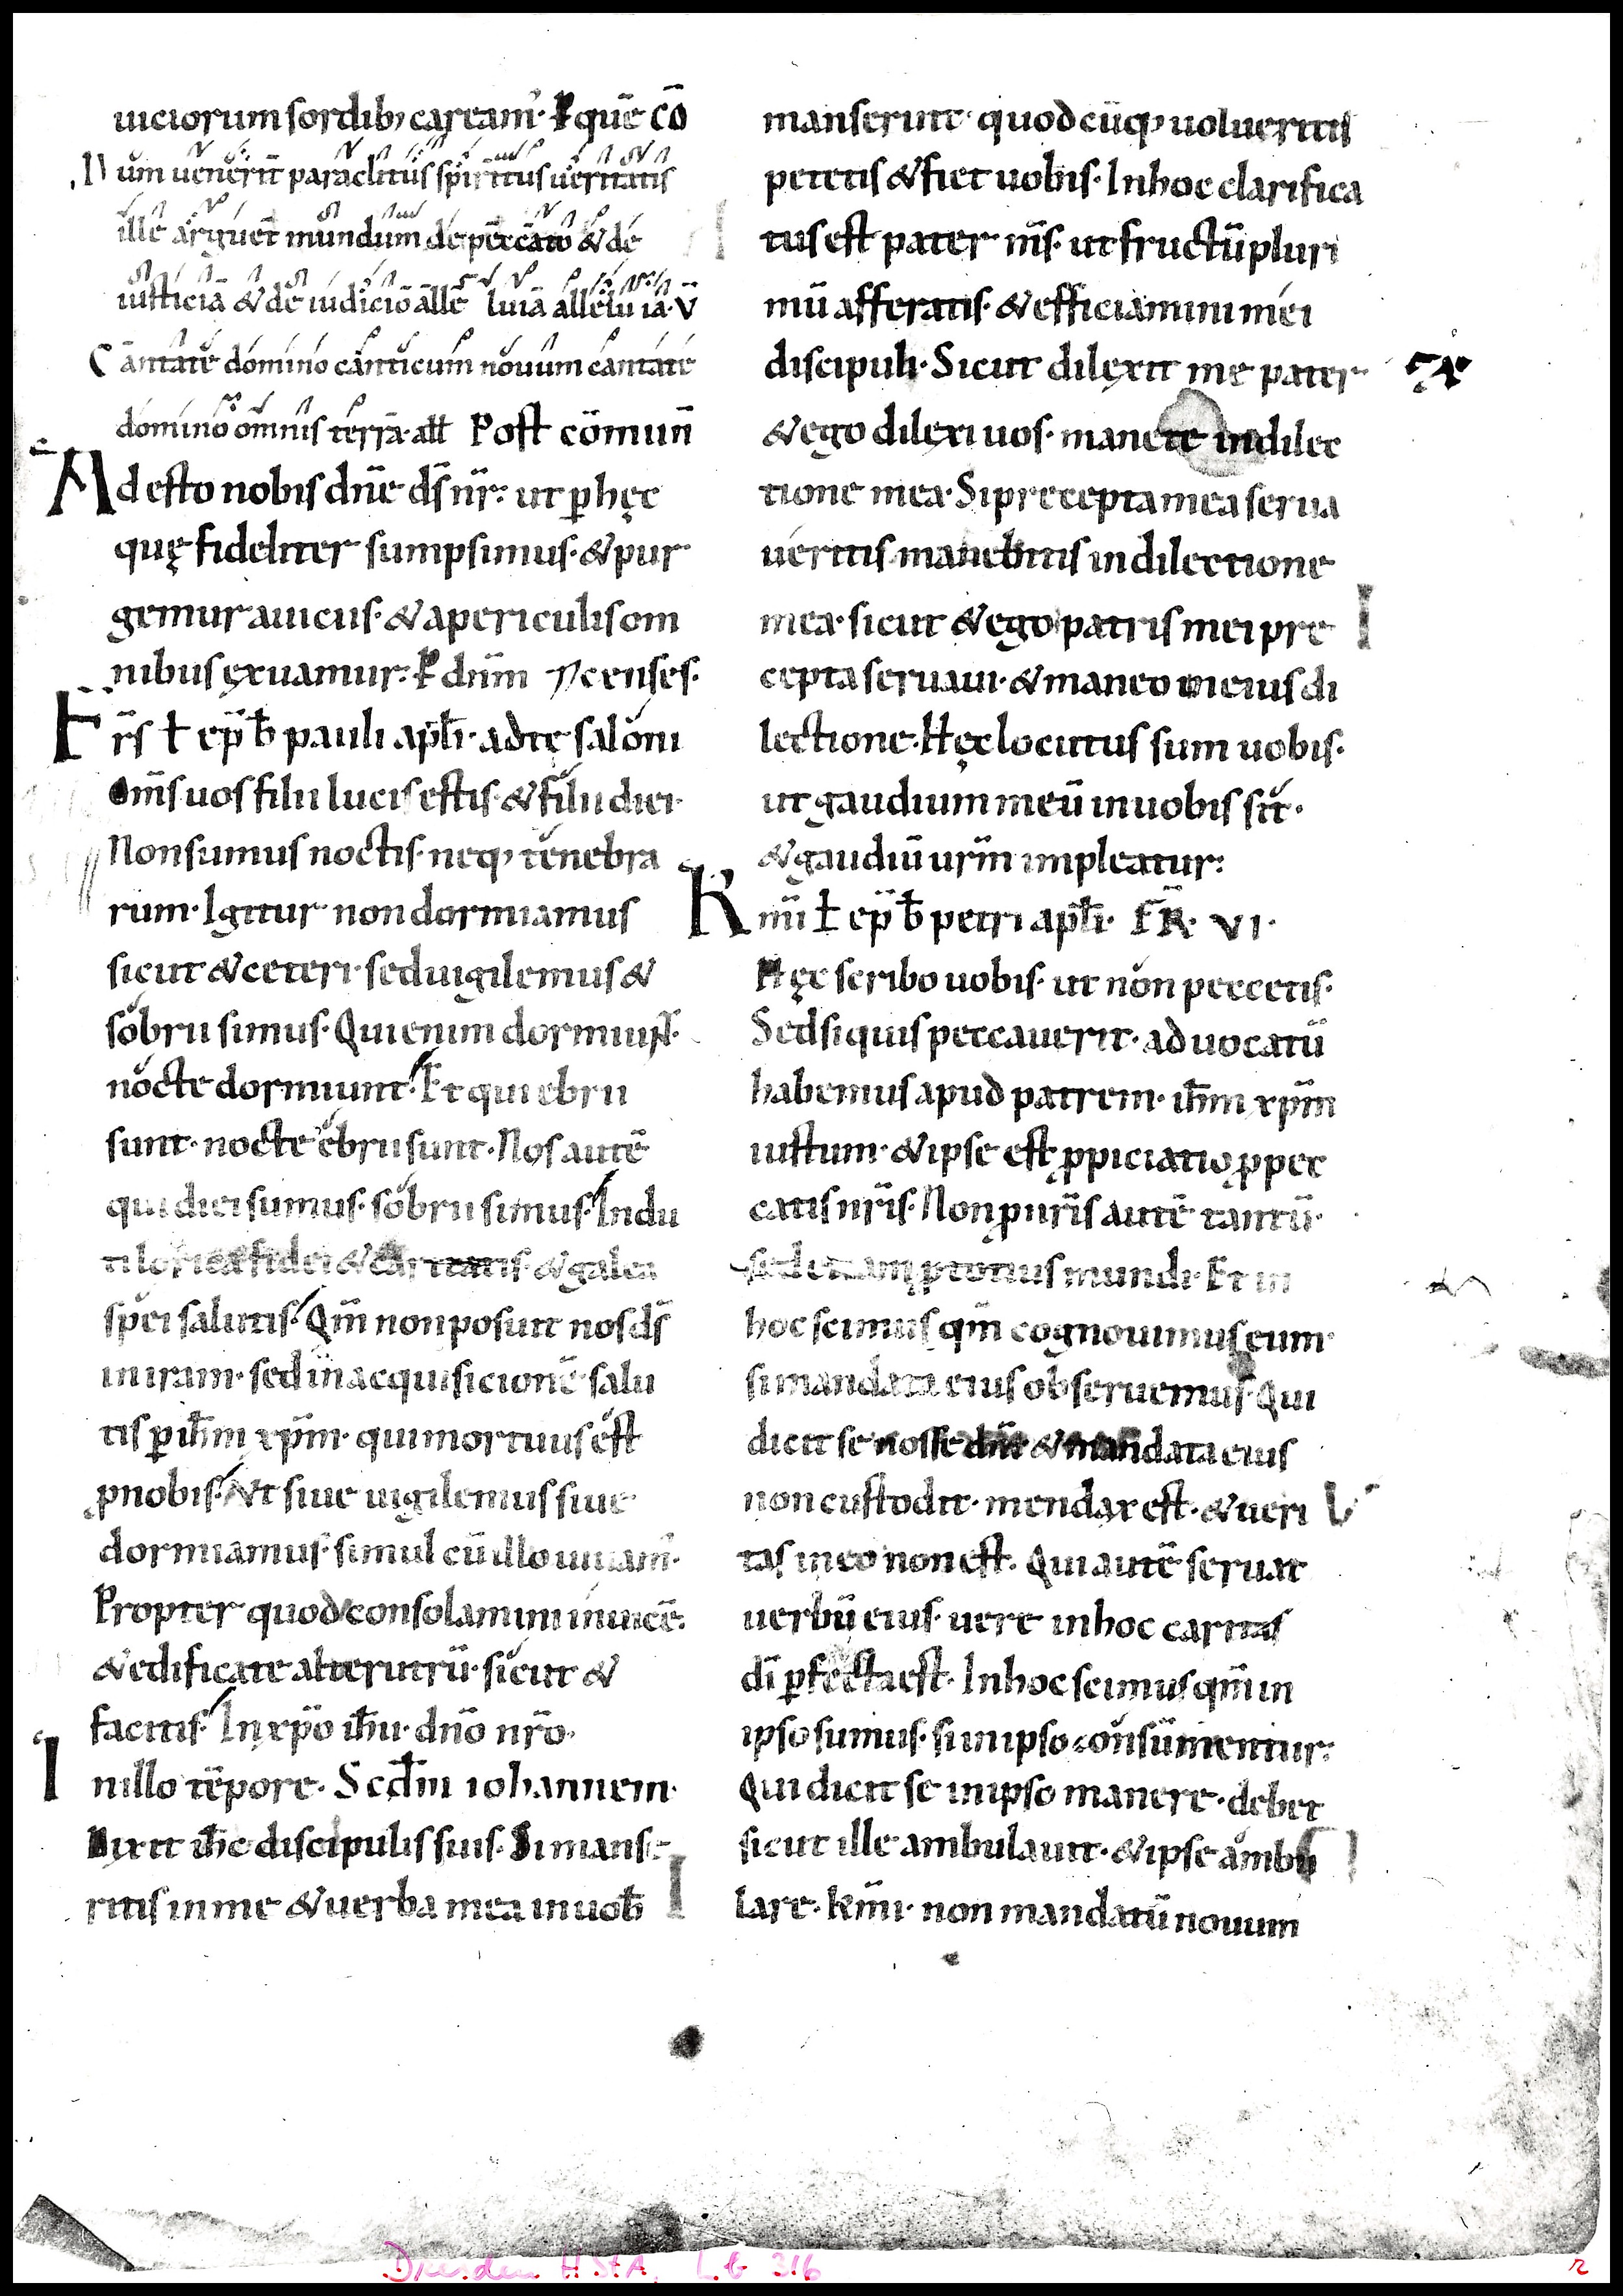 uiciorum sordib; caream᷒· P quē cō
Dum uenerit paraclitus spiritus ueritatis
ille arguet mundum de peccato & de
iusticia & de iudicio alle luia alleluia· V
Cantate domino canticum nouum cantate
domino omnis terra· aƚƚ Post cōmuñ
Adesto nobis dñe dš nr̄: ut ꝑ hęc
quę fideliter sumpsimus· & pur
gemur a uiciis· & a periculis om
nibus exuamur: P dnm̄ Pcenses·
Fr̄s ƚ ep̄ b̄ pauli apƚi· ad tesaloni
Om̄s uos filii lucis estis· & filii diei·
Non sumus noctis· neq; tenebra
rum· Igitur non dormiamus
sicut & ceteri· sed uigilemus &
sobrii simus· Qui enim dormiunt·
nocte dormiunt· Et qui ebrii
sunt· nocte ebrii sunt· Nos autē
qui diei sumus· sobrii simus· Indu
ti loricā fidei & caritatis· & galea
spei salutis· Qm̄ non posuit nos dš
in iram· sed in acquisicionē salu
tis ꝑ ihm̄ xpm̄· qui mortuus est
ꝓ nobis· Vt siue uigilemus siue
dormiamus· simul cū illo uiuam᷒·
Propter quod consolamini inuicē·
& edificate alterutrū· sicut &
facitis· In xpo ihu· dno nro·
In illo tēpore· Scdm̄ iohannem·
Dixit ihc discipulis suis· Si manse
ritis in me & uerba mea in uob̄
manserint· quodcūq; uolueritis
petetis & fiet uobis· In hoc clarifica
tus est pater ms· ut fructū pluri
mū afferatis· & efficiamini mei
discipuli· Sicut dilexit me pater
& ego dilexi uos· manete in dilec
tione mea· Si precepta mea serua
ueritis· manebitis in dilectione
mea· sicut & ego patris mei pre
cepta seruaui· & maneo in eius di
lectione· Hęc locutus sum uobis·
ut gaudium meū in uobis sit·
& gaudiū urm̄ impleatur:
Kmi ƚ ep̄ b̄ petri apƚi· FR̄· VI·
Hęc scribo uobis· ut non peccetis·
Sed si quis peccauerit· aduocatū
habemus apud patrem· ihm̄ xpm̄
iustum· & ipse est ꝓpiciatio ꝓ pec
catis nris· Non ꝓ nris autē tantū·
sed etiam ꝓ totius mundi· Et in
hoc scimus qm̄ cognouimus eum·
si mandata eius obseruemus· Qui
dicit se nosse dm̄ & mandata eius
non custodit· mendax est· & ueri
tas in eo non est· Qui autē seruat
uerbū eius· uere in hoc caritas
dī ꝑfecta est· In hoc scimus qm̄ in
ipso sumus· si in ipso consūmemur:
Qui dicit se in ipso manere· debet
sicut ille ambulauit· & ipse ambu
lare· Kmi· non mandatū nouum
Dresden H.St.A, L.6 316